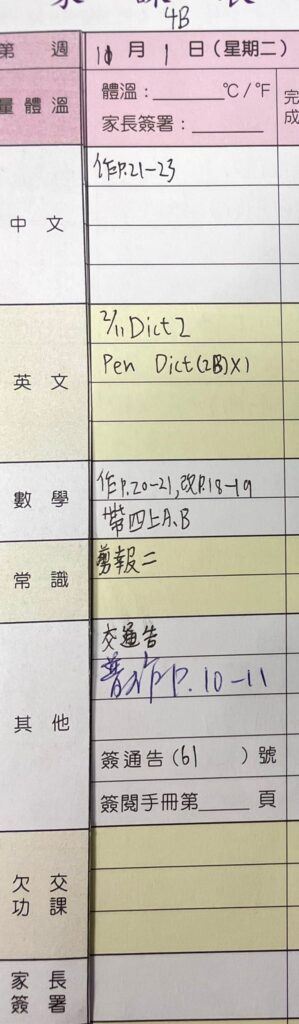 家課表
4B
第 週 11月1日(星期二)
量體溫 體溫:______°C/°F 完成
家長簽署:______
中文 作P.21-23
英文 2/11 Dict 2
Pen Dict(2B)x1
數學 作P.20-21,改P.18-19
帶四上A、B
常識 剪報二
其他 交通告
普作P.10-11
簽通告(61 )號
簽閱手冊第____頁
欠交功課
家長簽署